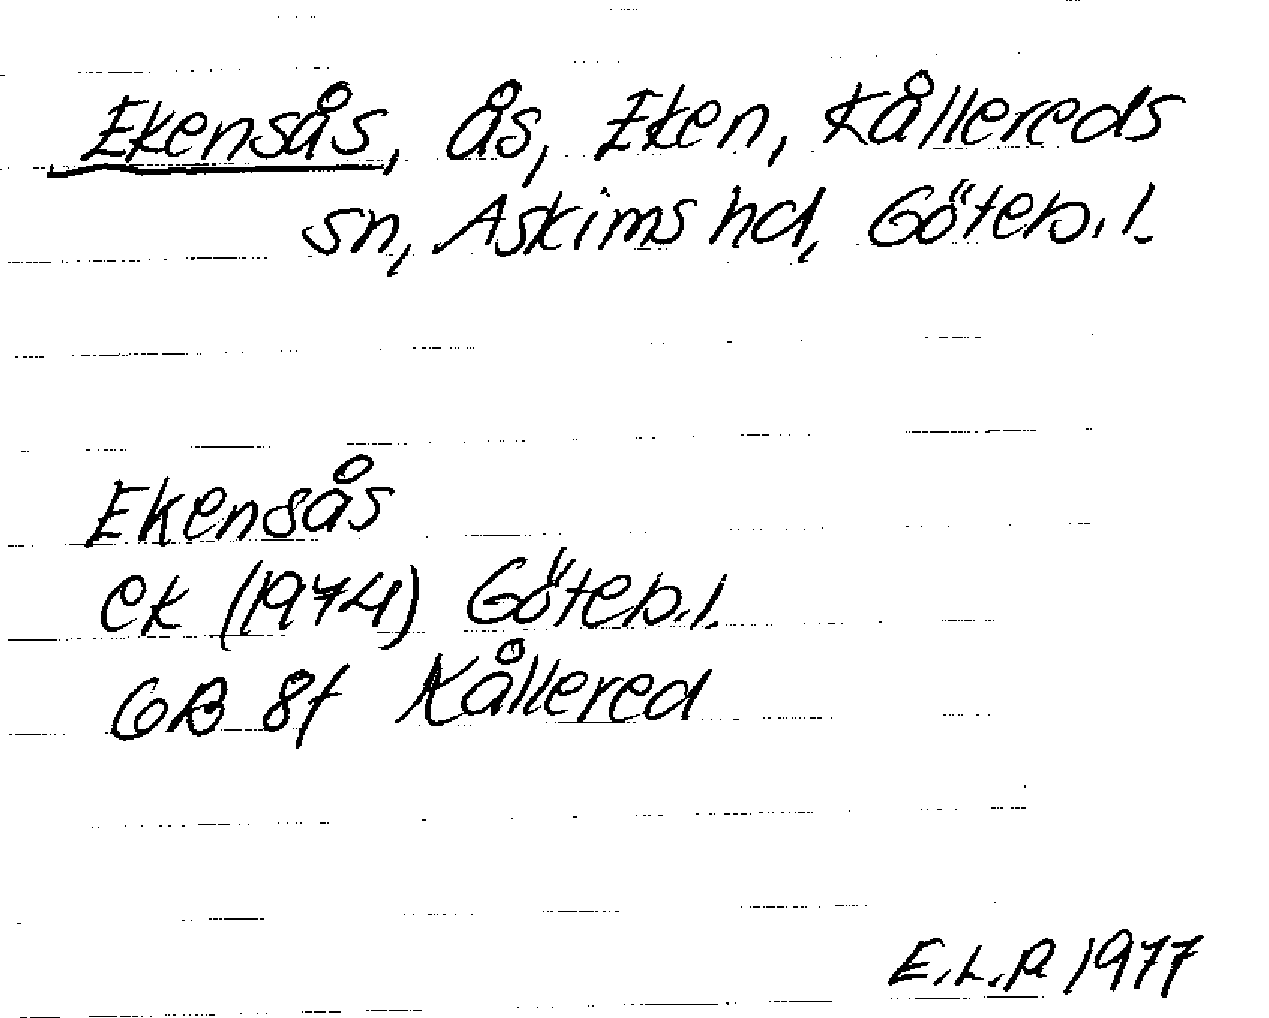 Ekensås, ås, Eken, Kållereds
sn, Askims hd, Göteb. l.
Ekensås
ek (1974) Göteb. l.
GB 8f Kållered
E.L.P 1977